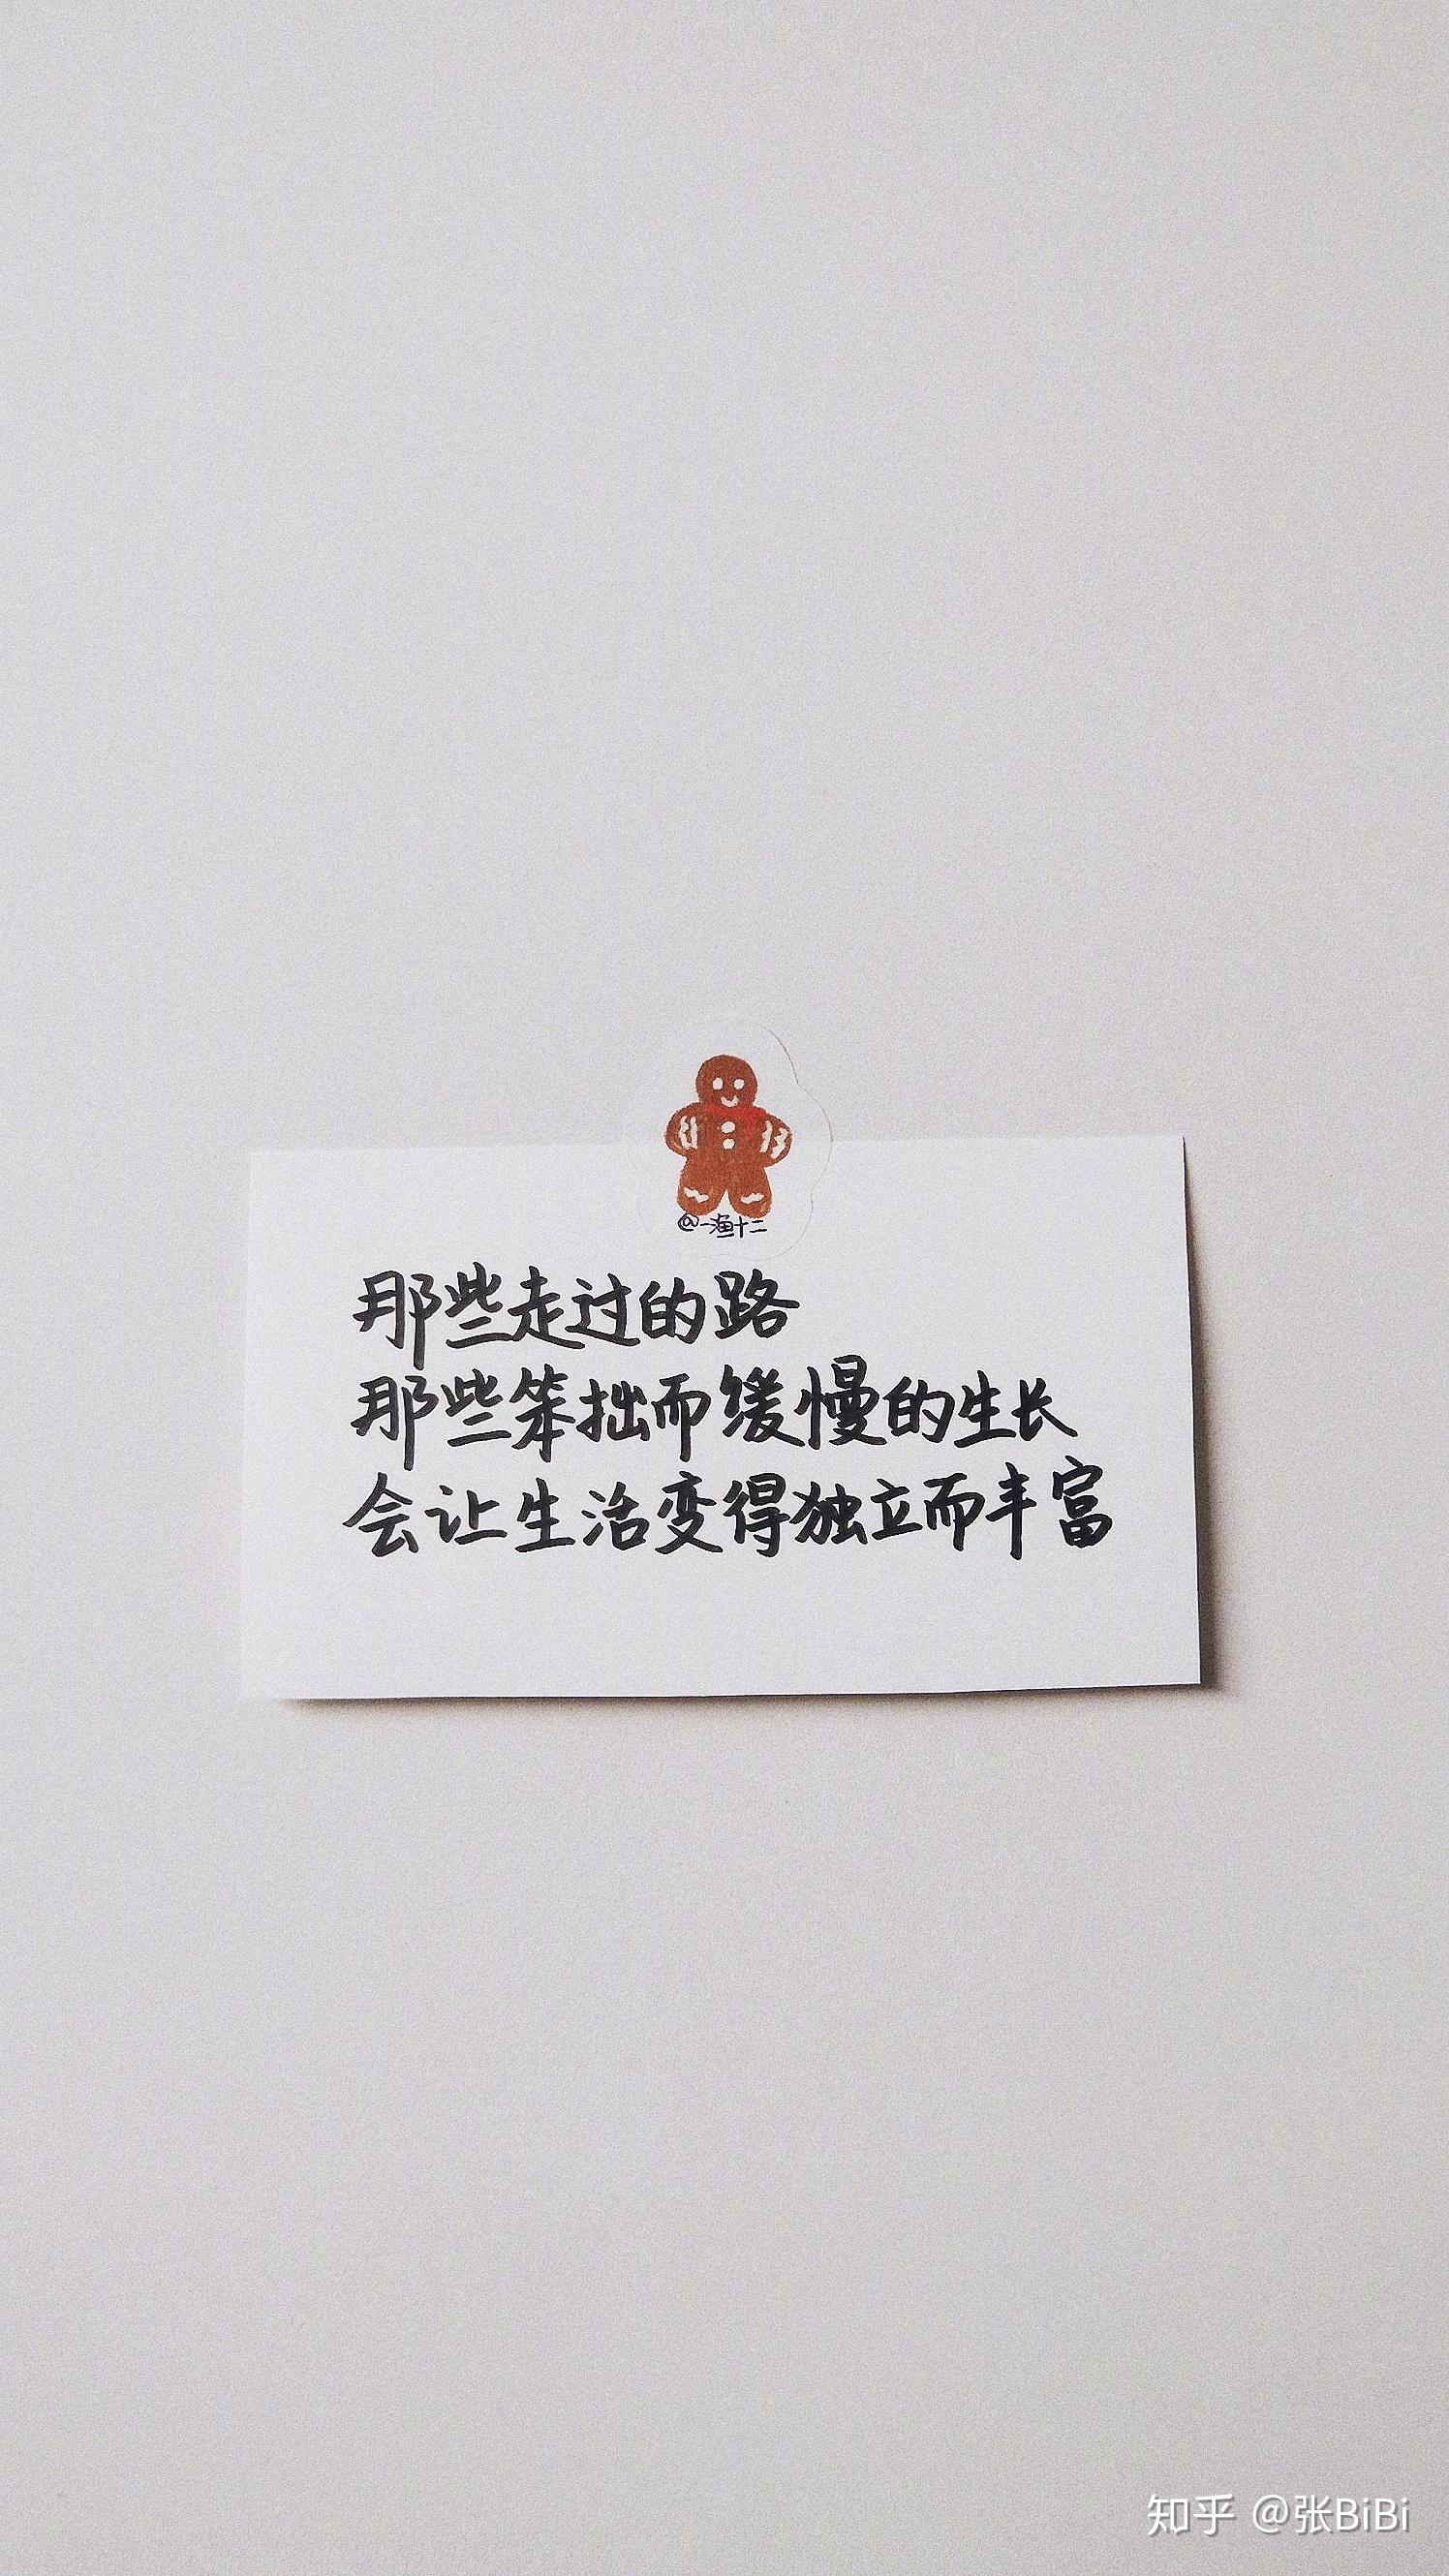 @一渔十二
那些走过的路
那些笨拙而缓慢的生长
会让生活变得独立而丰富
知乎 @张BiBi